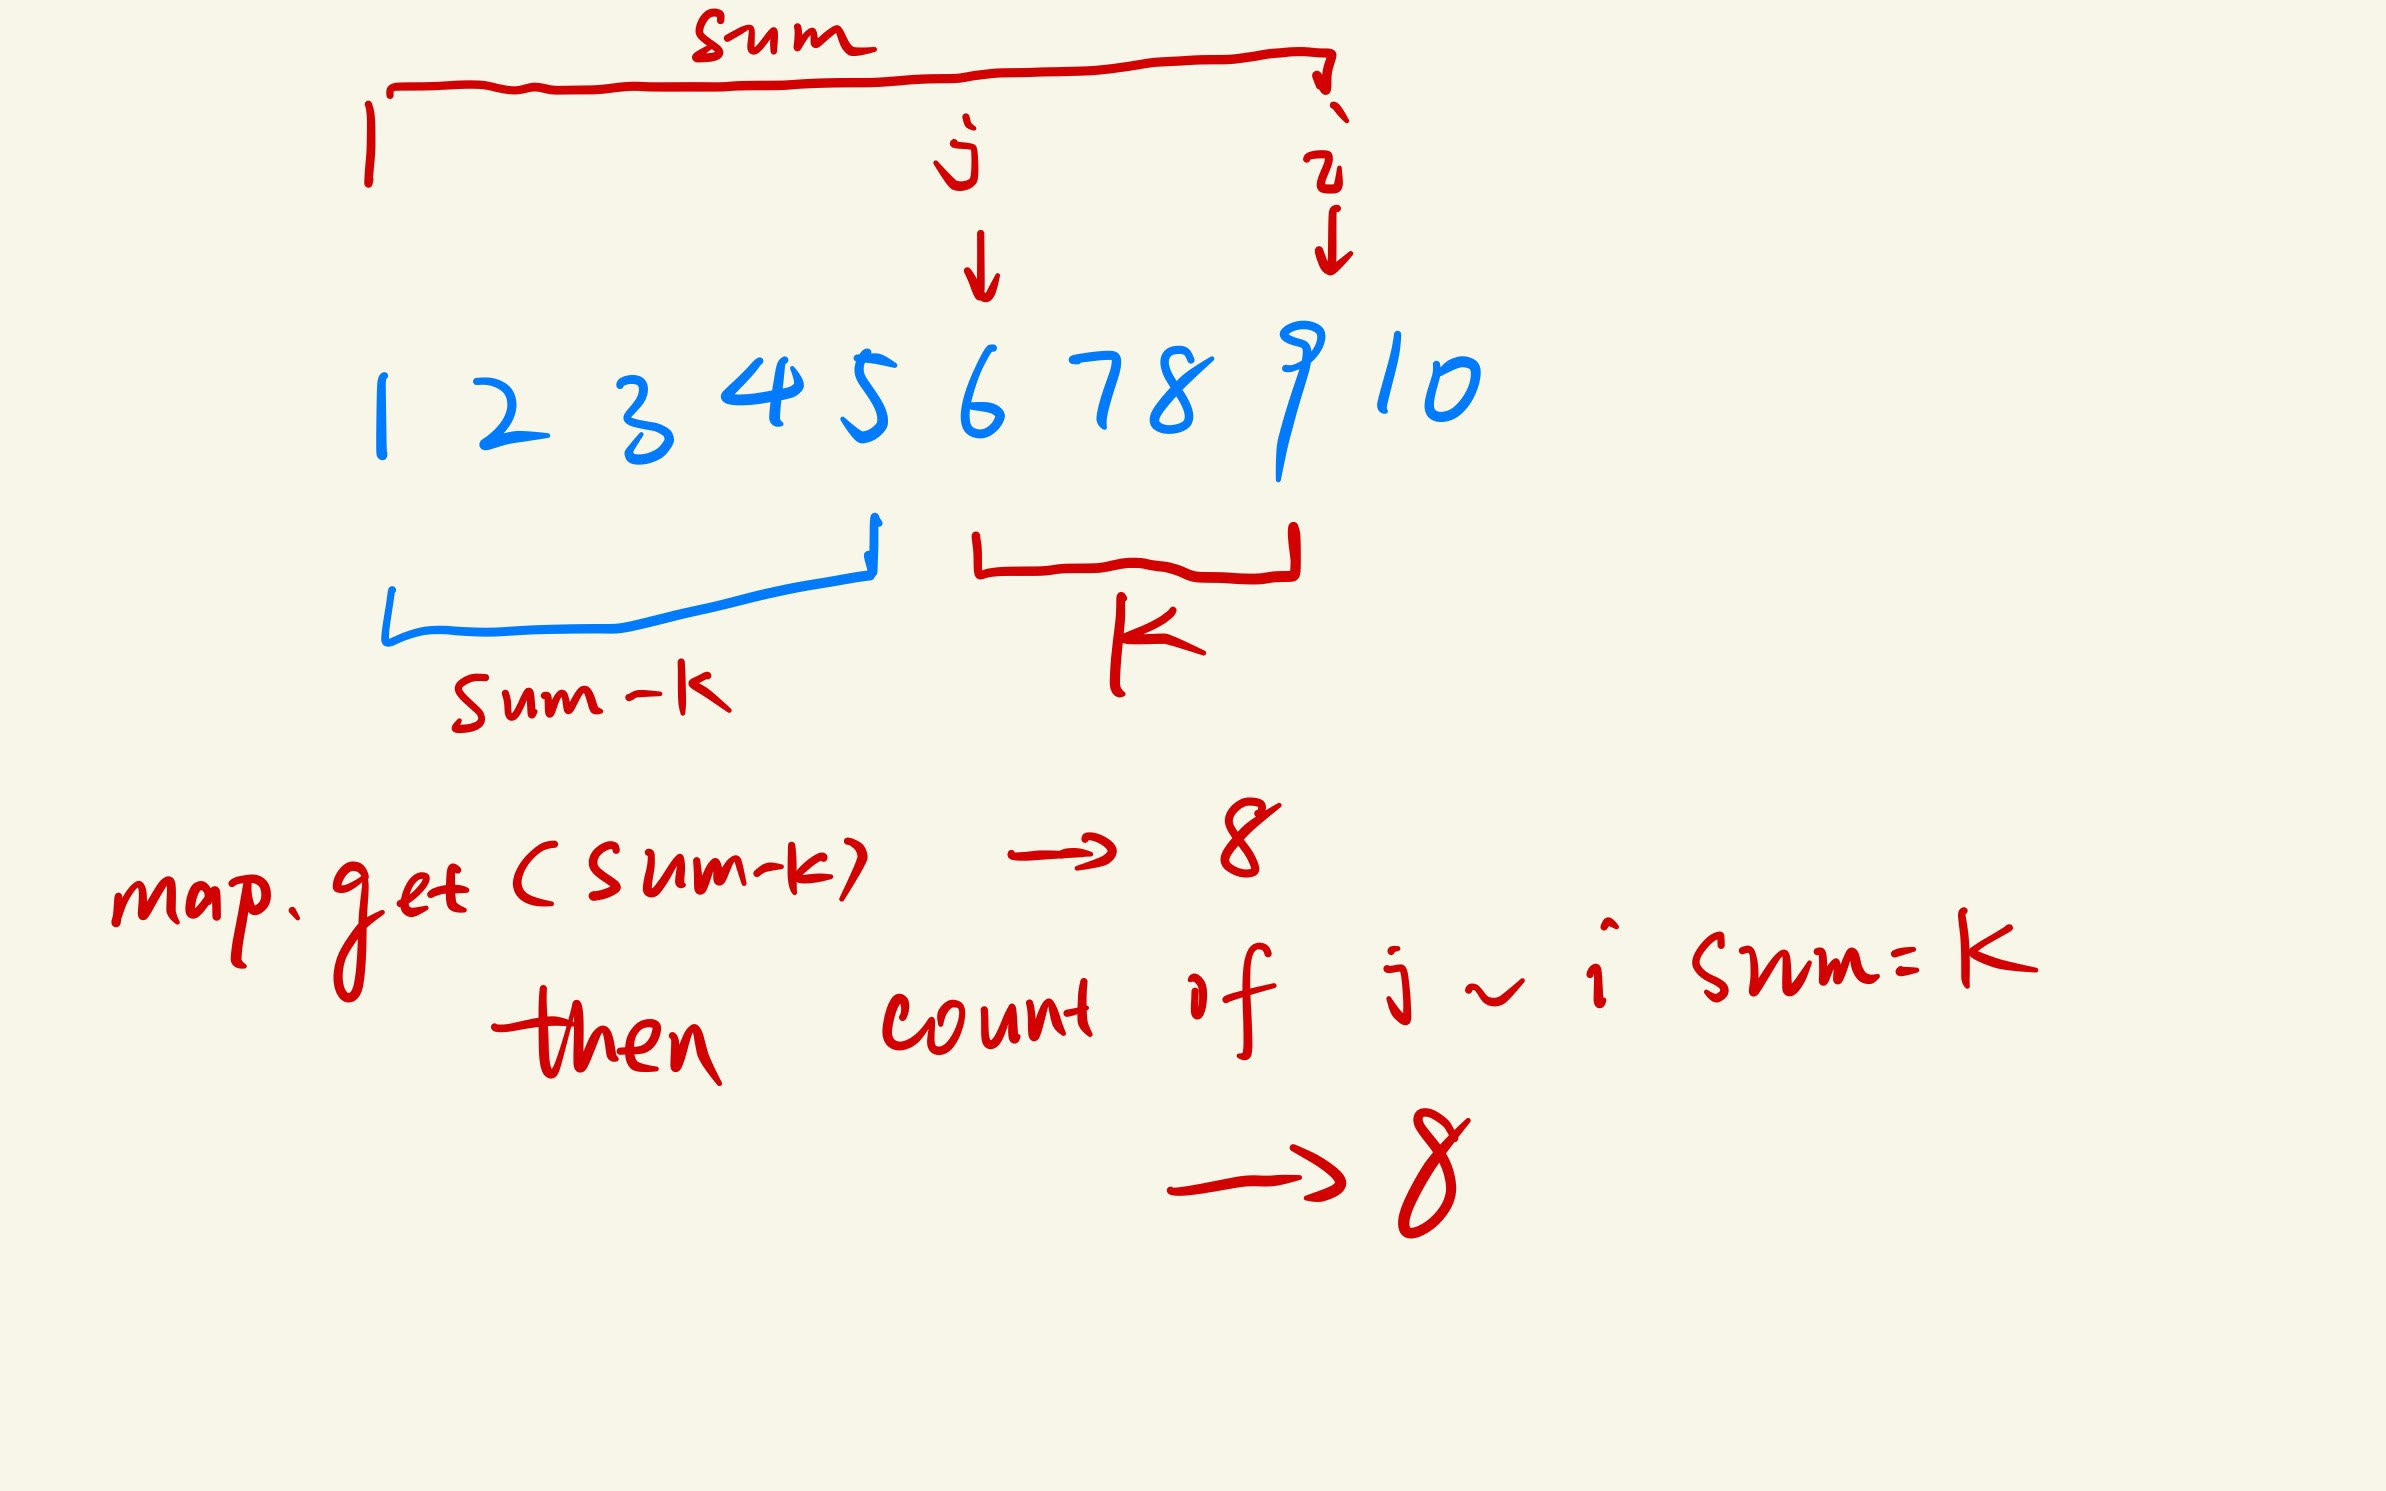 sum
j i
1 2 3 4 5 6 7 8 9 10
K
sum-K
map.get(sum-k) → 8
then count if j ~ i sum = K
→ 8